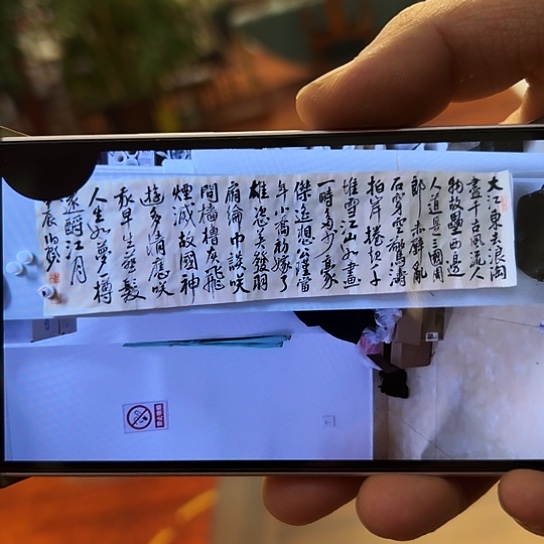 大江東去浪淘
盡千古風流人
物故壘西邊
人道是三國周
郎赤壁亂
石穿空驚濤
拍岸捲起千
堆雪江山如畫
一時多少豪
傑遥想公瑾當
年小喬初嫁了
雄姿英發羽
扇綸巾談咲
間檣櫓灰飛
煙滅故國神
遊多情應咲
我早生華髮
人生如夢一樽
還酹江月